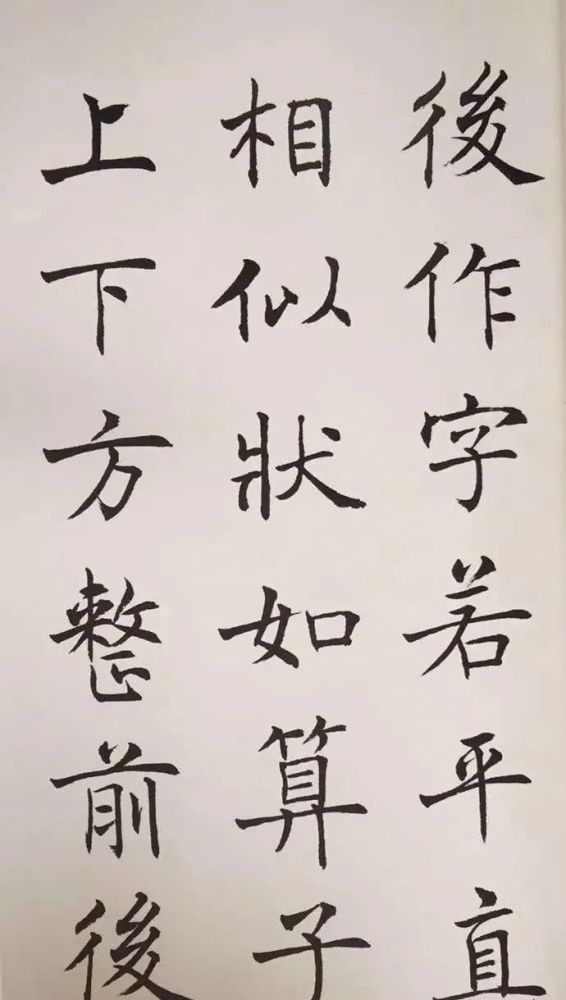 後作字若平直
相似狀如算子
上下方整前後